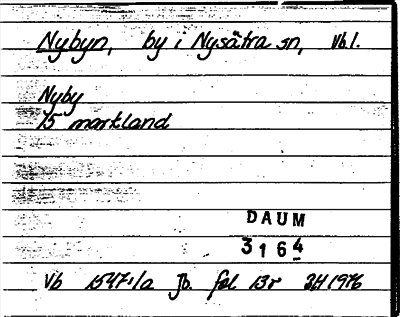 Nybyn, by i Nysätra sn, Vb l.
Nyby
15 markland
DAUM
3164
Vb 1547:1a Jb. fol 13r 3H 1976